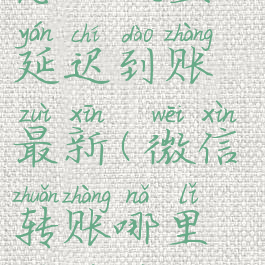 yán chí dào zhàng
延迟到账
zuì xīn wēi xìn
最新(微信
zhuǎn zhàng nǎ lǐ
转账哪里